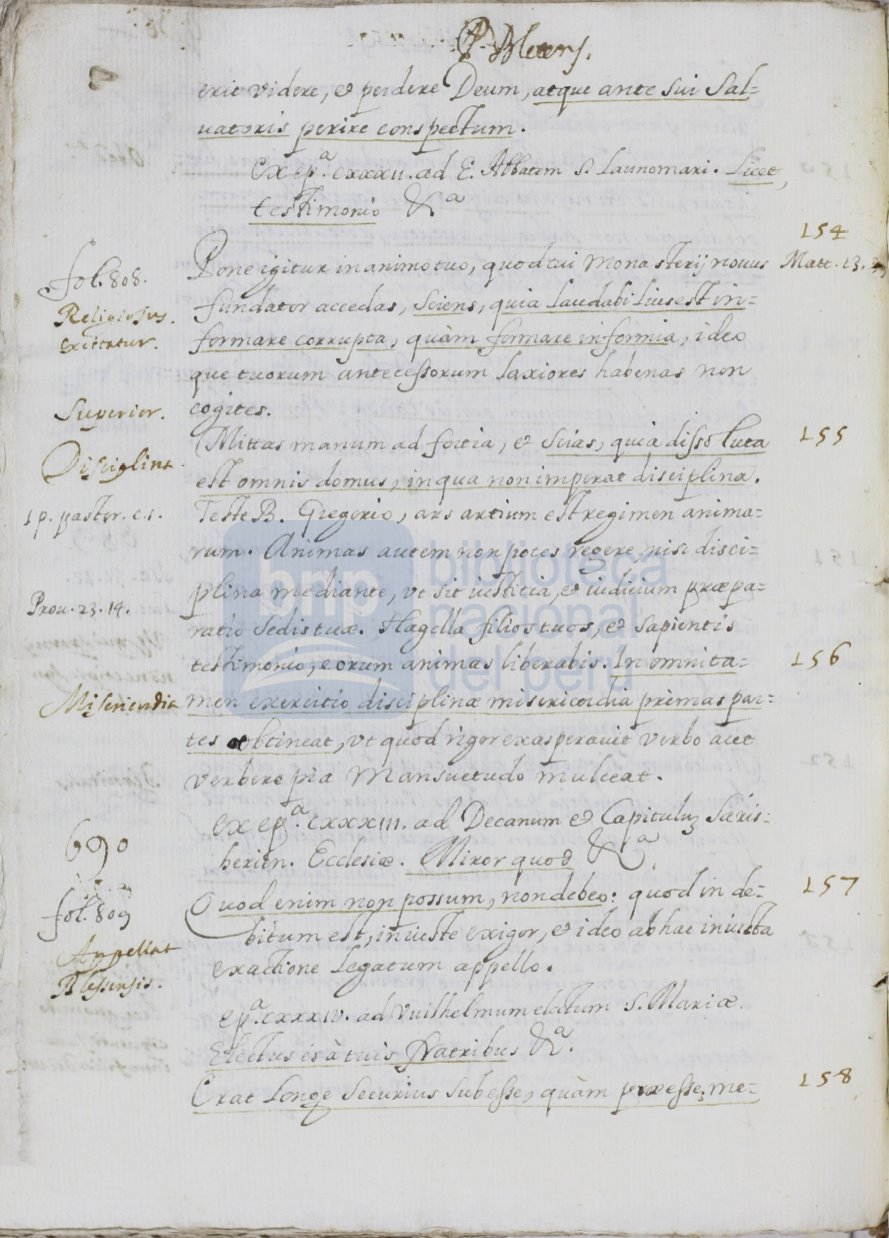 P. Blaesens.
erit videre, et perdere Deum, atque ante sui Sal-
uatoris perire conspectum.
ex epª. cxxxii. ad E. Abbatem S. Launomari. Licet,
testimonio &ª
154
Pone igitur in animo tuo, quod tui Monasterij nouus Matt. 13.
fol. 808.
fundator accedas, Sciens, quia laudabilius est in-
Religiosus.
formare corrupta, quàm formare informia, ideo
excitatur.
que tuorum antecessorum laxiores habenas non
cogites.
Superior.
Mittas manum ad fortia, et Scias, quia dissoluta 155
Disciplina.
est omnis domus, in qua non imperat disciplina.
1 p. pastor. c. 1.
Teste B. Gregorio, ars artium est regimen anima-
rum. Animas autem non potes regere, nisi disci-
plina mediante, vt sit iustitia, et iudicium præpa-
Prou. 23. 14.
ratio Sedis tuæ. flagella filios tuos, et Sapientis
testimonio, eorum animas liberabis. In omni ta- 156
Misericordia
men exercitio disciplinæ misericordia primas par-
tes obtineat, vt quod rigor exasperauit verbo aut
verbere pia Mansuetudo mulceat.
ex epª. cxxxiii. ad Decanum et Capitulum Særis-
690
berien. Ecclesiæ. Miror quod &ª.
Quod enim non possum, non debeo: quod in de- 157
fol. 809
bitum est, iniuste exigor, et ideo ab hac iniusta
Appellat
exactione Legatum appello.
Blesensis.
epª. cxxxiv. ad Vuilhelmum electum S. Mariæ.
Electus es à tuis fratribus &ª.
Erat Longe Securius Subesse, quàm præesse, me- 158
biblioteca
nacional
del perú
bnp